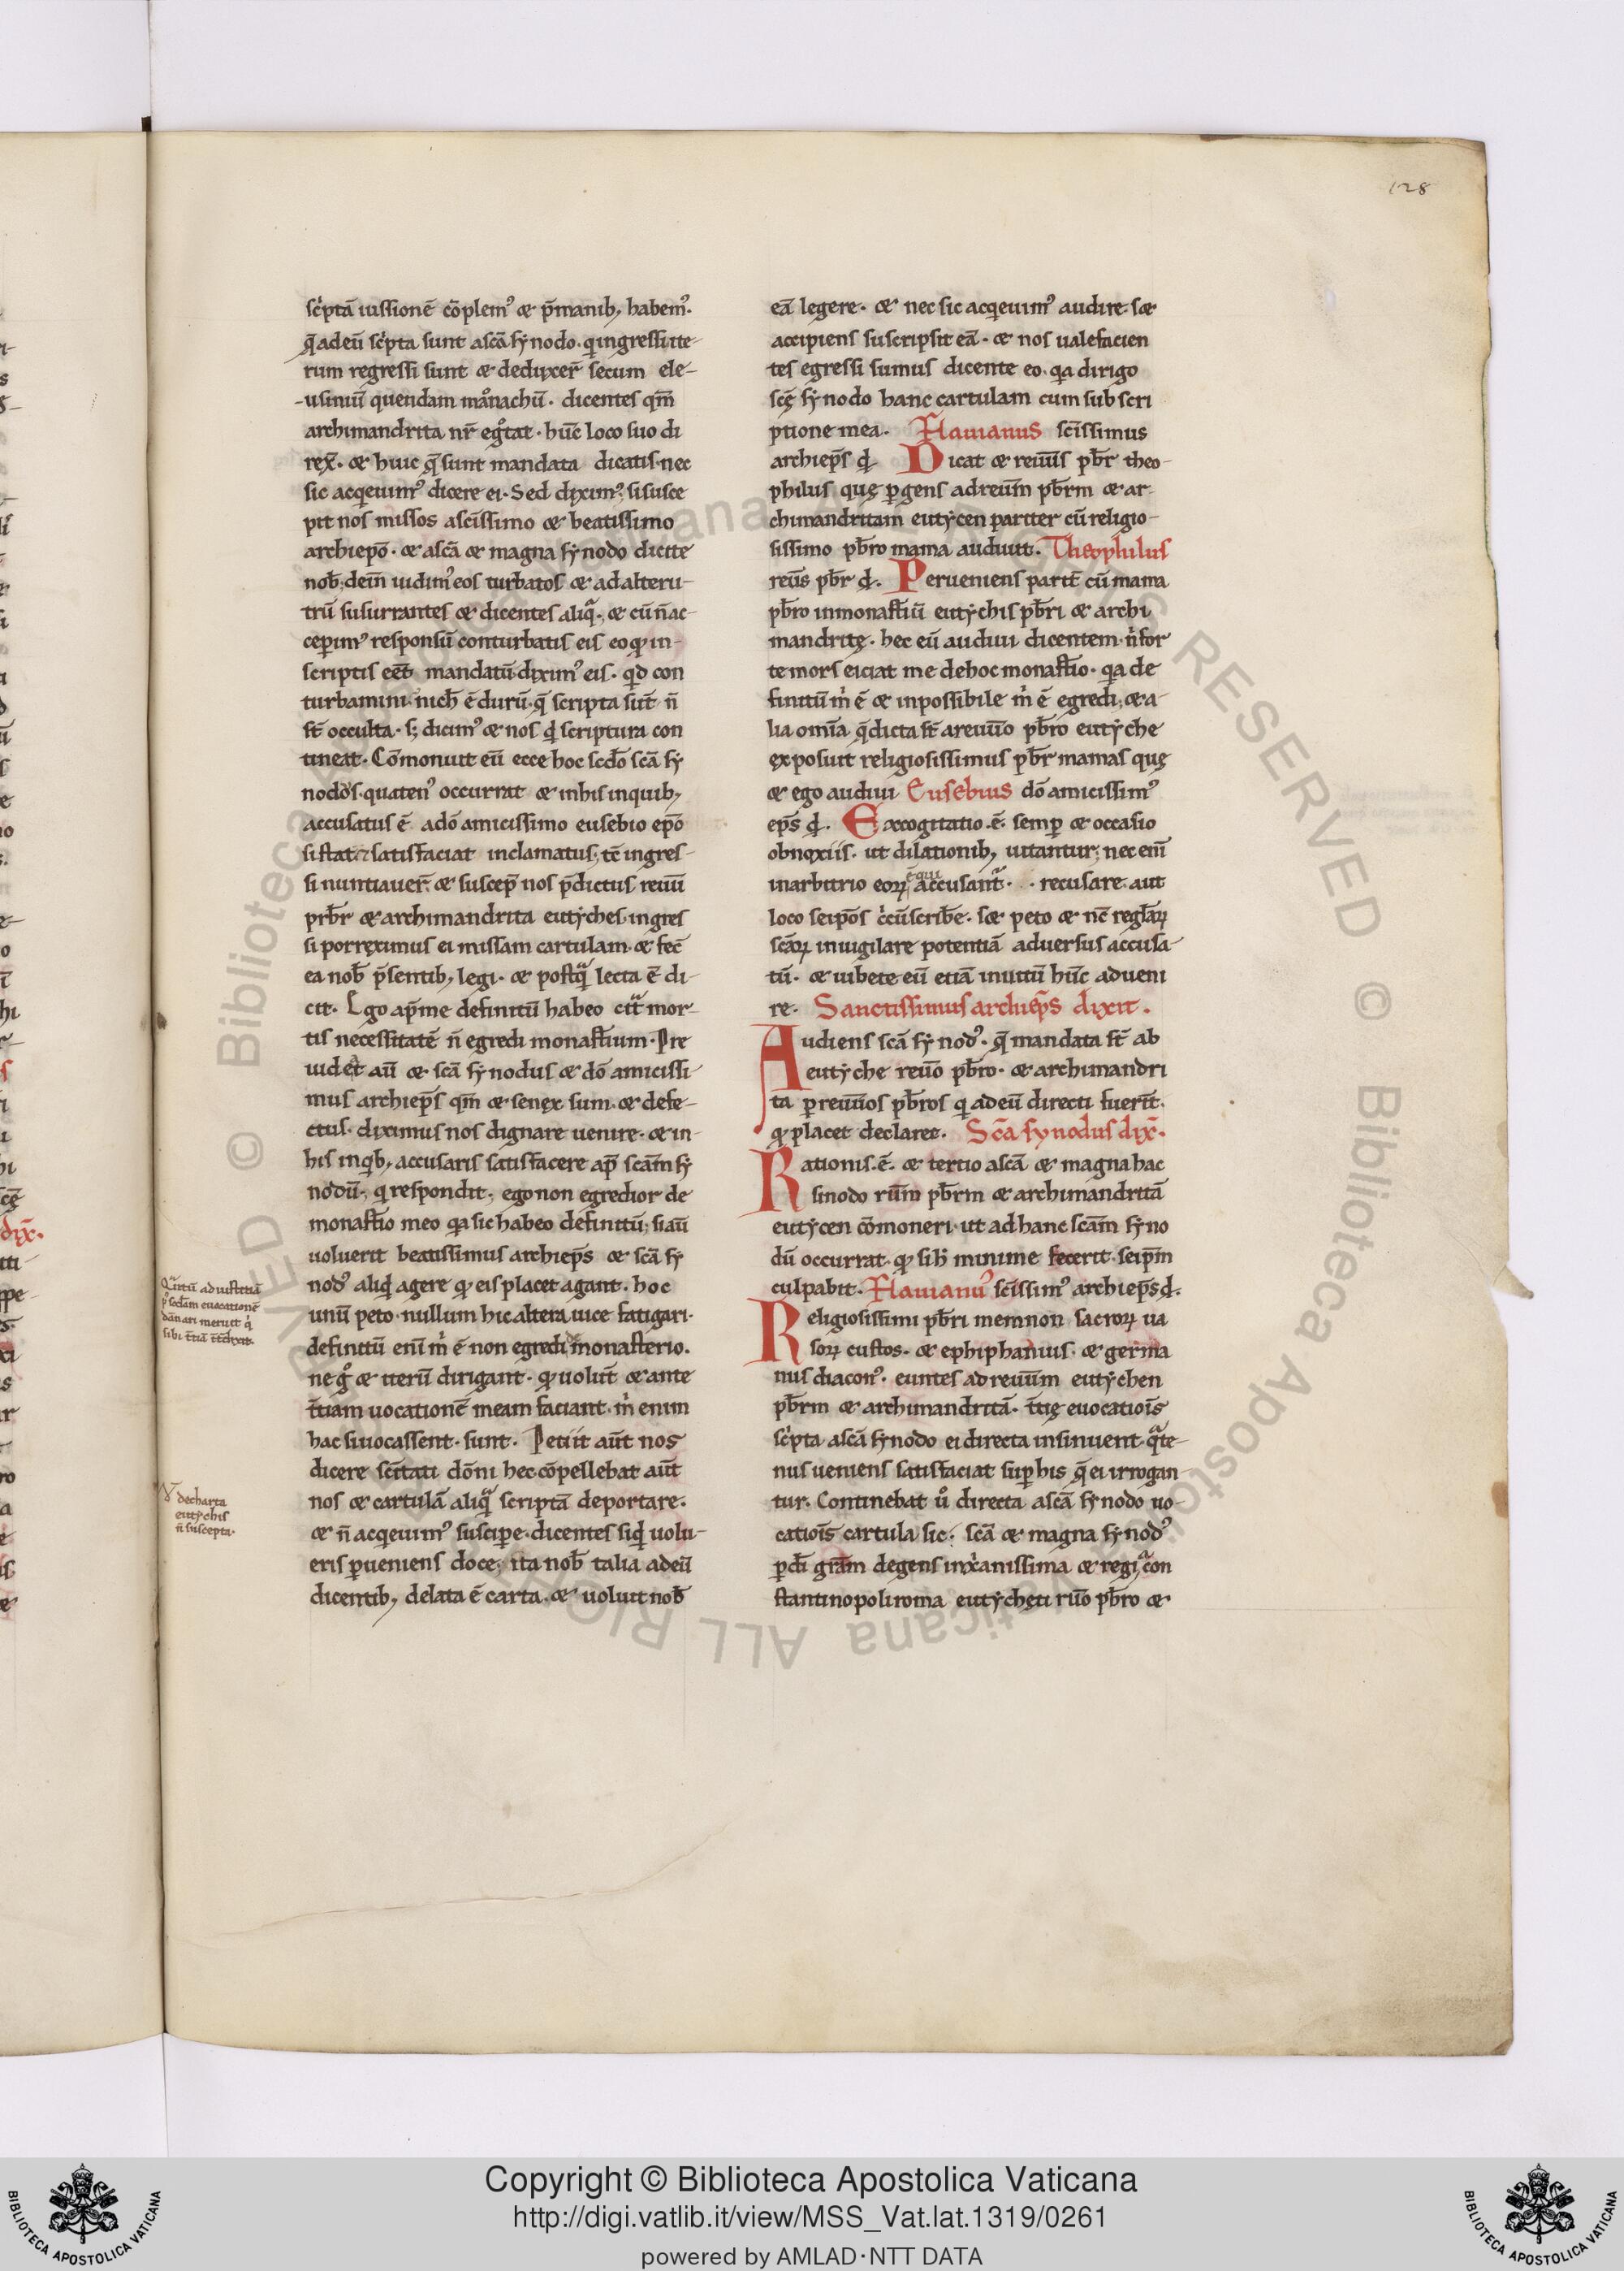 128
sc̓ptā iussionē cōplem᾽ & p̄manib; habem᾽.
q̄ adeū sc̓pta sunt a scā synodo. q ingressi ite-
rum regressi sunt & deduxer̄ secum ele-
-usiniū quendam monachū. dicentes qm̄
archimandrita nr̄ egͦtat. hūc loco suo di
rex̄. & huic q̄ sunt mandata dicatis. nec
sic acqeuim᾽ dicere ei. Sed dixim᾽. si susce
pit nos missos a scīssimo & beatissimo
archiepō. & a scā & magna synodo dicite
nob̄. dein̄ uidim᾽ eos turbatos & ad alteru-
trū susurrantes & dicentes aliq̄. & cū n̄ ac-
cepim᾽ responsū conturbatis eis eo qđ in-
scriptis eēt mandatū. dixim᾽ eis. qid con
turbamini. nich̄ ē durū. q̄ scripta sūt n̄
st̄ occulta. s; dicim᾽ & nos qd scriptura con
tineat. Cōmonuit eū ecce hoc scdō scā sy
nodos. quaten᾽ occurrat & in his in quib;
accusatus ē a dō amicissimo eusebio epō
sistat & satisfaciat inclamatus; tē ingres-
si nuntiauer̄. & suscep̄ nos p̄dictus reuū
prb̄r & archimandrita eutyches. ingres
si porreximus ei missam cartulam. & fec̄
ea nob̄ p̄sentib; legi. & postq̄ lecta ē di-
cit. Ego ap̄ me definitū habeo cit̄ mor-
tis necessitatē n̄ egredi monast̄ium. Pre
uidet aū & scā synodus & dō amicissi
mus archiep̄s qm̄ & senex sum. & defe-
ctus. diximus nos dignare uenire. & in-
his in qib; accusaris satisfacere ap̄ scām sy
nodū. q respondit. ego non egredior de
monast̄io meo qa sic habeo definitū. si aū
uoluerit beatissimus archiep̄s & scā sy
nod᾽ aliqd agere qđ eis placet agant. hoc
unū peto. nullum hic altera uice fatigari.
definitū enī m̓ ē non egredi de monasterio.
ne gͦ & iterū dirigant. qđ uolūt & ante
t̄tiam uocationē meam faciant. m̓ enim
hac si uocassent. sunt. Petiit aūt nos
dicere scītati dōni hec cōpellebat aūt
nos & cartulā aliq̄ scriptā deportare.
& n̄ acqeuim᾽ suscipe. dicentes siqd uolu-
eris pueniens doce. ita nob̄ talia adeū
dicentib; delata ē carta. & uoluit nob̄
Q̄tū ad iustitiā
p᾽ scdam euacationē
dānari meruit q
sibi t̄tiā t̄t dixit.
decharta
eutychis
n̄ suscepta.
eā legere. & nec sic acqeuim᾽ audire. s&
accipiens suscripsit eā. & nos ualefacien
tes egressi sumus dicente eo. qa dirigo
scę synodo hanc cartulam cum subscri
ptione mea. Flauianus scīssimus
archiep̄s đ. Dicat & reuūs pb̄r theo-
philus quę pgens ad reuūm pb̄rm & ar-
chimandritam eutycen pariter cū religio-
sissimo pb̄ro mama audiuit. Theophilus
reūs pb̄r đ. Perueniens parit̄ cū mama
pb̄ro in monast̄iū eutychis pb̄ri & archi
mandritę. hec eū audiui dicentem. n̓ for
te mors eiciat me de hoc monast̄io. qa de
finitū m̓ ē & inpossibile m̓ ē egredi. & a-
lia omīa q̄ dicta st̄ a reuūo pb̄ro eutyche
exposuit religiosissimus pb̄r mamas quę
& ego audiui Eusebius dō amicissim᾽
ep̄s đ. Excogitatio. ē. semp & occasio
obnoxiis. ut dilationib; utantur; nec enī
in arbitrio eoꝝ ē qui accusant̄. recusare. aut
loco seipōs c̓cūscribe. s& peto & nc̄ regl̄aꝝ
scāꝝ inuigilare potentiā aduersus accusa-
tū. & iubete eū etiā inuitū hūc adueni
re. Sanctissimus archiep̄s dixit.
Audiens scā synod᾽. q̄ mandata st̄ ab
eutyche reūo pb̄ro. & archimandri
ta p reuūos pb̄ros q adeū directi fuer̄t.
qđ placet declaret. Scā synodus dix̄.
Rationis. ē. & tertio a scā & magna hac
sinodo rūm pb̄rm & archimandritā
eutycen cōmoneri. ut ad hanc scām syno
dū occurrat. qđ si h̓ minime fecerit. seip̄m
culpabit. Flauian᾽ scīssim᾽ archiep̄s đ.
Religiosissimi pb̄ri memnon sacroꝝ ua
soꝝ custos. & ephiphanius. & germa
nus diacon᾽. euntes ad reuūm eutychen
pb̄rm & archimandritā. t̄tię euocatiōis
sc̓pta a scā synodo ei directa insinuent. q̄te-
nus ueniens satisfaciat sup his q̄ ei irrogan-
tur. Continebat uͦ directa a scā synodo uo-
catiōis cartula sic. scā & magna synod᾽
p dī grām degens in xp̄ianissima & regia con
stantinopoli roma eutycheti rūo pb̄ro &
Copyright © Biblioteca Apostolica Vaticana
http://digi.vatlib.it/view/MSS_Vat.lat.1319/0261
powered by AMLAD·NTT DATA